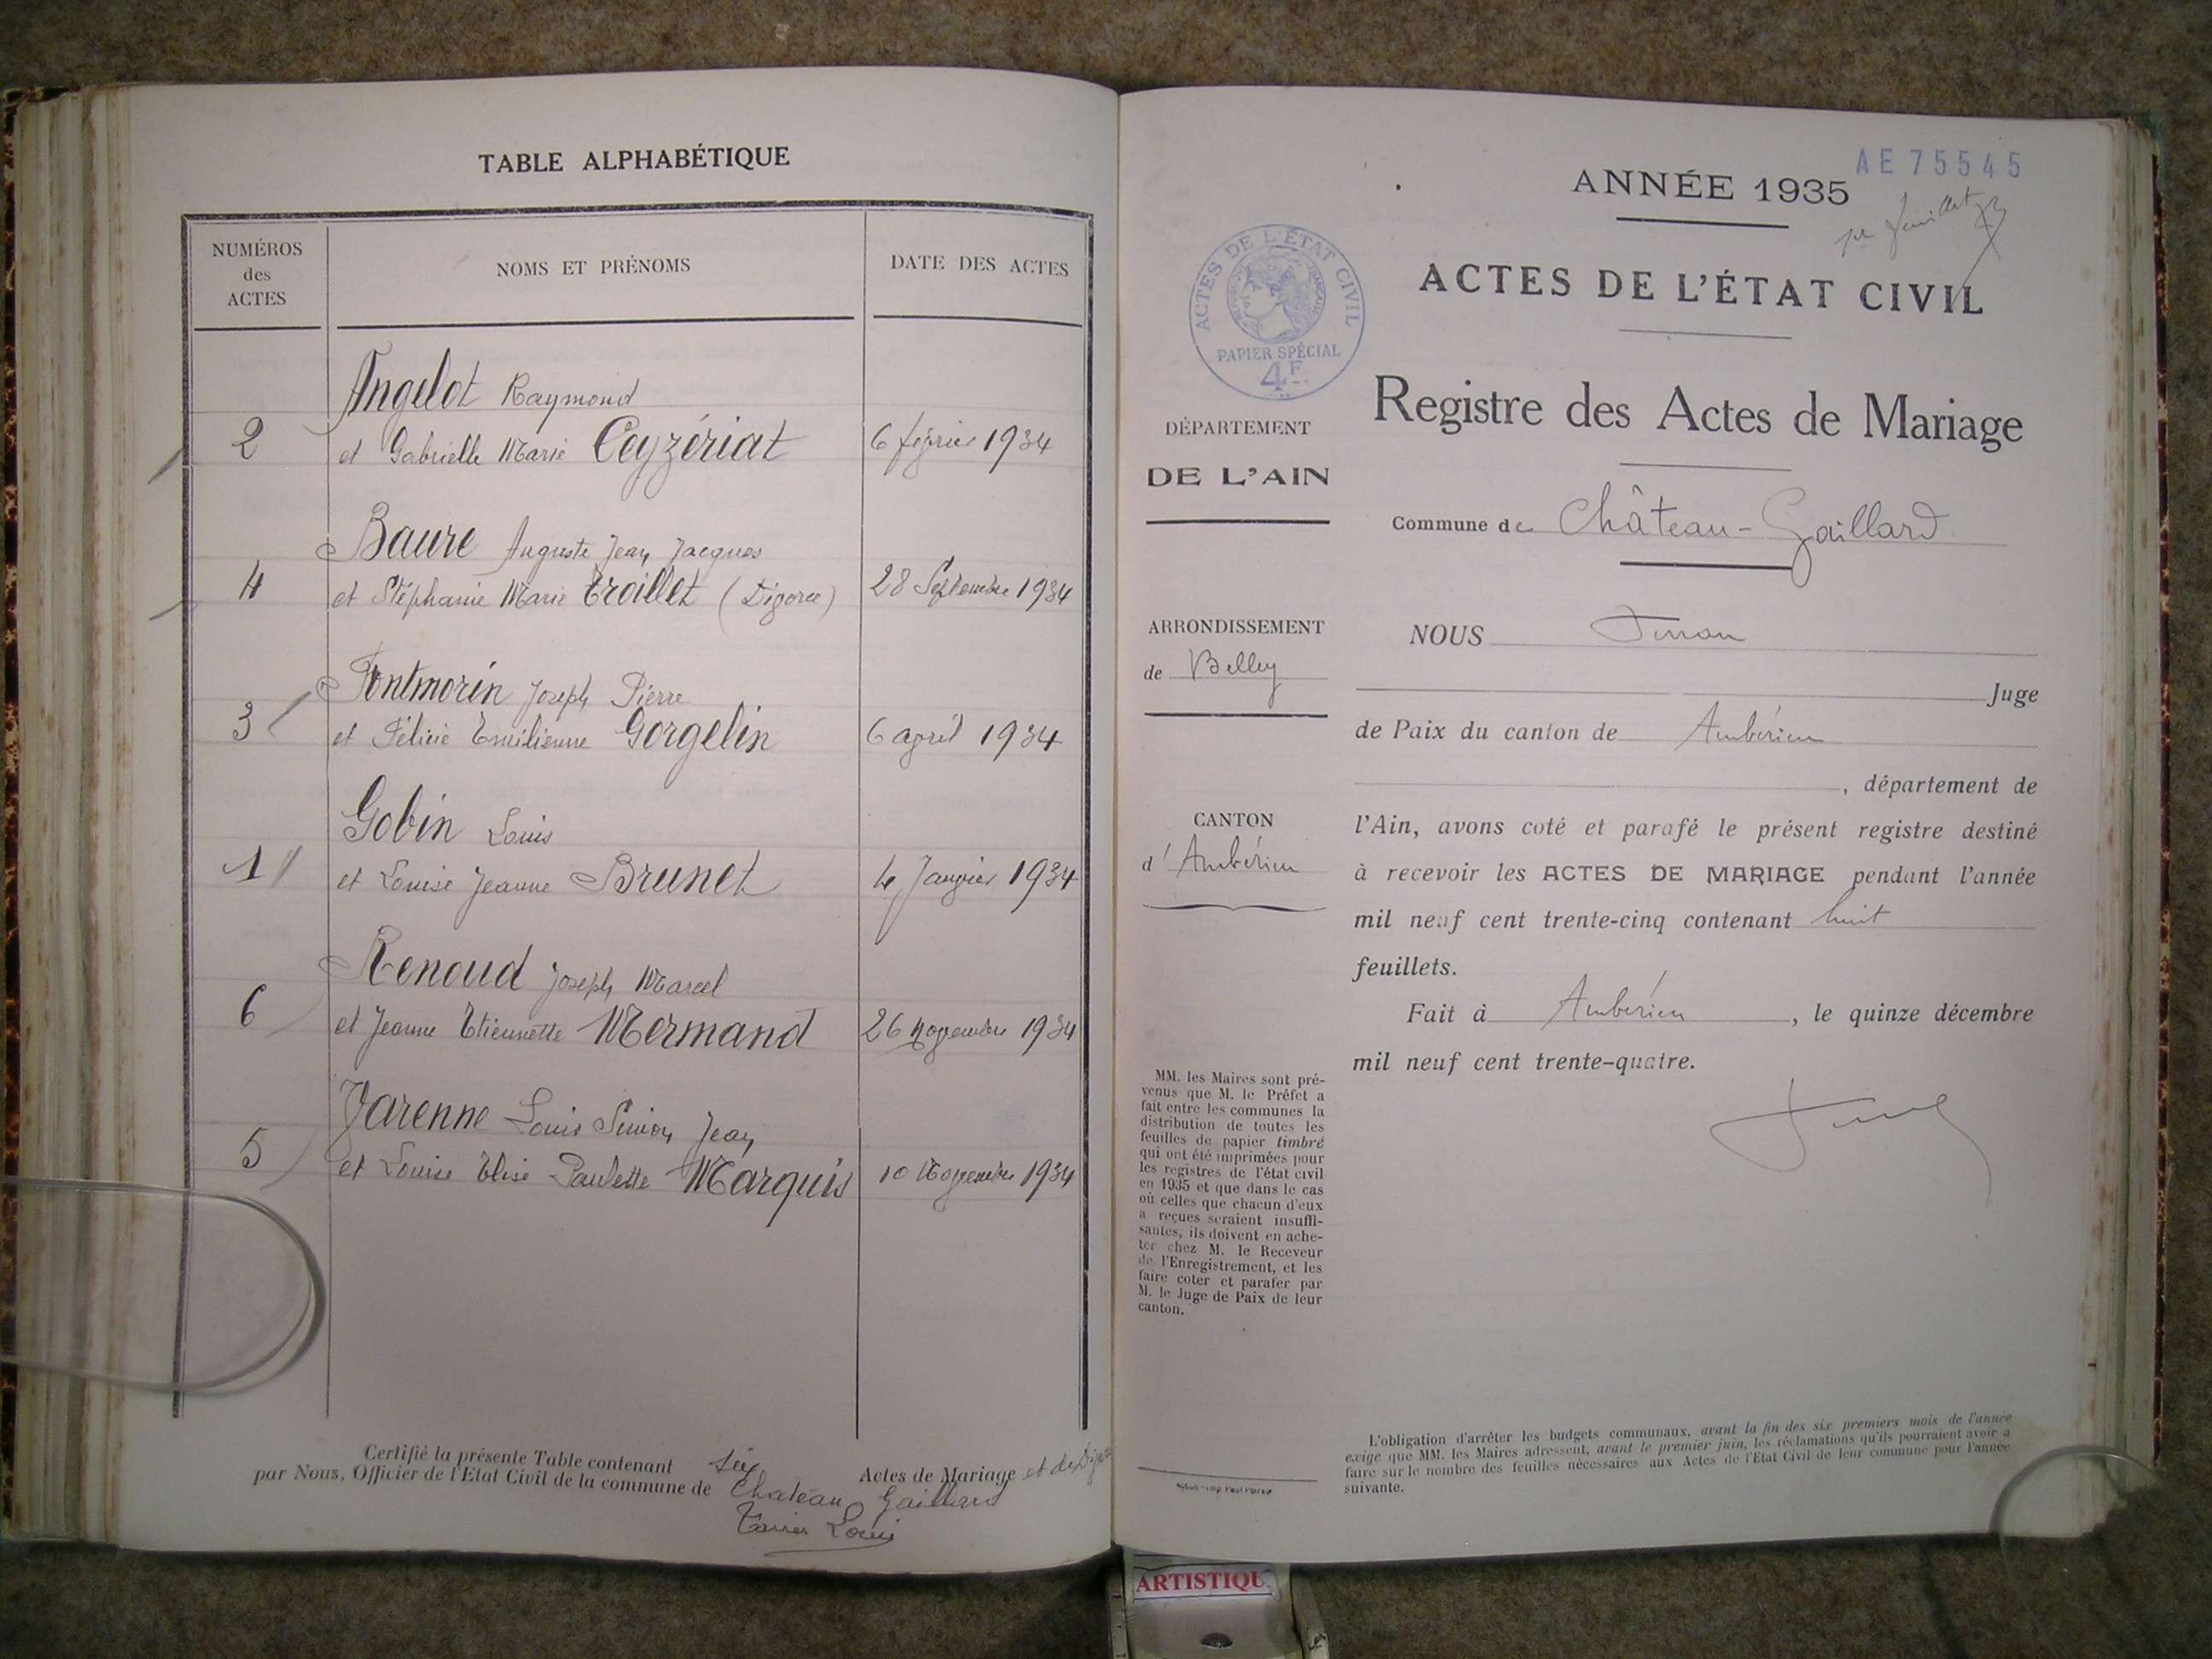 TABLE ALPHABÉTIQUE
NUMÉROS
des
ACTES
NOMS ET PRÉNOMS
DATE DES ACTES
Angelot Raymond
2 et Gabrielle Marie Ceyzériat 6 février 1934
Baure Auguste Jean Jacques
4 et Stéphanie Marie Troillet (Divorce) 28 Septembre 1934
Fontmorin Joseph Pierre
3 et Félicie Emilienne Gorgelin 6 avril 1934
Gobin Louis
1 et Louise Jeanne Brunet 4 Janvier 1934
Renoud Joseph Marcel
6 et Jeanne Etiennette Mermand 26 novembre 1934
Varenne Louis Simon Jean
5 et Louise Elise Paulette Marquis 10 Novembre 1934
Certifié la présente Table contenant six Actes de Mariage et de
par Nous, Officier de l'Etat Civil de la commune de Chateau Gaillard
Louis
AE75545
ANNÉE 1935
1er feuillet
ACTES DE L'ÉTAT CIVIL
ACTES DE L'ÉTAT CIVIL
PAPIER SPÉCIAL
4F
Registre des Actes de Mariage
DÉPARTEMENT
DE L'AIN
Commune de Château-Gaillard
ARRONDISSEMENT
de Belley
CANTON
d'Ambérieu
MM. les Maires sont pré-
venus que M. le Préfet a
fait entre les communes la
distribution de toutes les
feuilles de papier timbré
qui ont été imprimées pour
les registres de l'état civil
en 1935 et que dans le cas
où celles que chacun d'eux
a reçues seraient insuffi-
santes, ils doivent en ache-
ter chez M. le Receveur
de l'Enregistrement, et les
faire coter et parafer par
M. le Juge de Paix de leur
canton.
NOUS
Juge
de Paix du canton de Ambérieu
, département de
l'Ain, avons coté et parafé le présent registre destiné
à recevoir les ACTES DE MARIAGE pendant l'année
mil neuf cent trente-cinq contenant huit
feuillets.
Fait à Ambérieu, le quinze décembre
mil neuf cent trente-quatre.
L'obligation d'arrêter les budgets communaux, avant la fin des six premiers mois de l'année
exige que MM. les Maires adressent, avant le premier juin, les réclamations qu'ils pourraient avoir a
faire sur le nombre des feuilles nécessaires aux Actes de l'Etat Civil de leur commune pour l'année
suivante.
ARTISTIQU